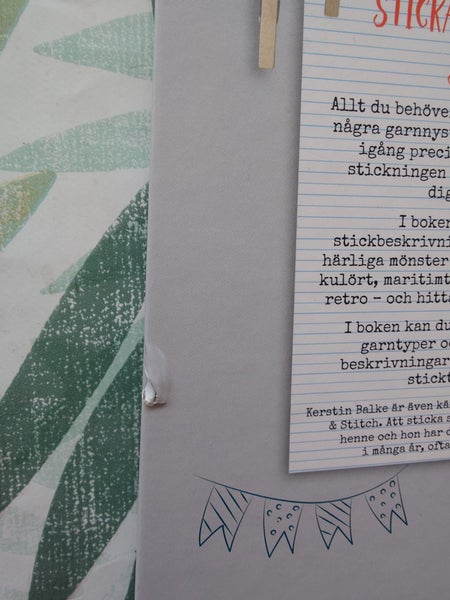 STICKA
Allt du behöve
några garnnys
igång preci
stickningen
dig
I boken
stickbeskrivni
härliga mönster
kulört, maritimt
retro – och hitta
I boken kan du
garntyper oc
beskrivningar
stickt
Kerstin Balke är även kä
& Stitch. Att sticka s
henne och hon har d
i många år, ofta